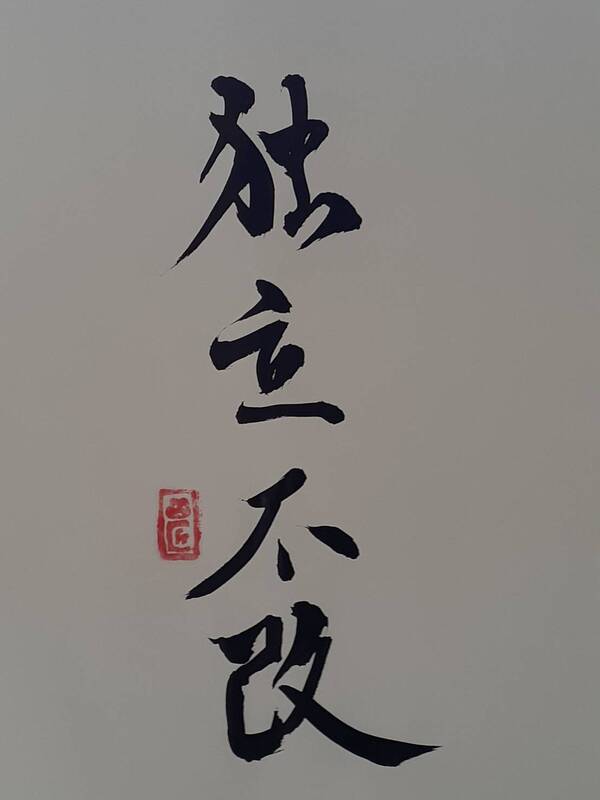 独立不改